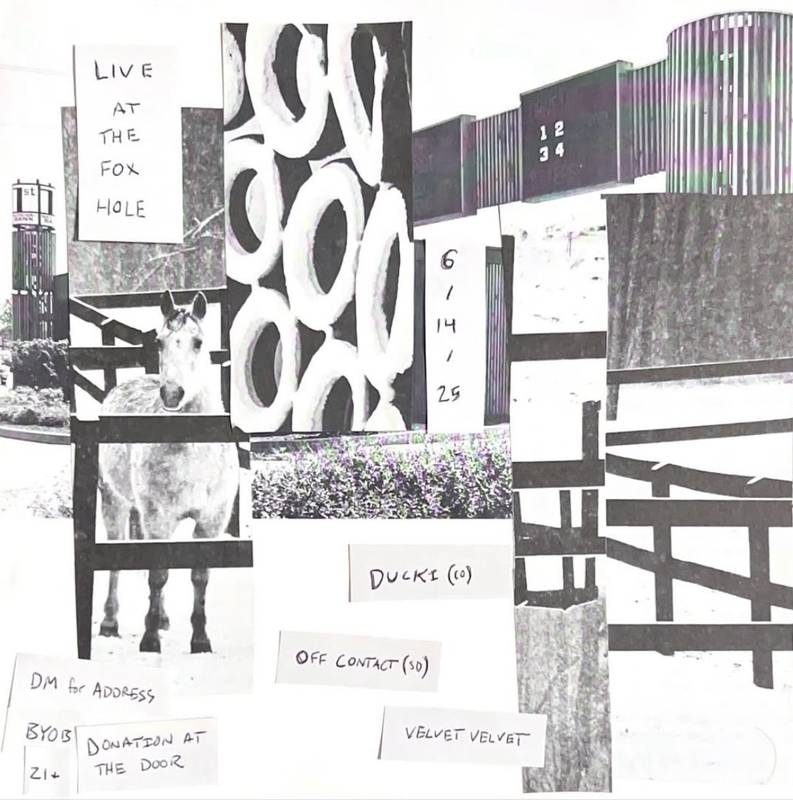 LIVE
AT
THE
FOX
HOLE
1st
BANK
12
34
6
/
14
/
25
DUCKI (CO)
OFF CONTACT (SD)
VELVET VELVET
DM for ADDRESS
BYOB
21+
DONATION AT
THE DOOR